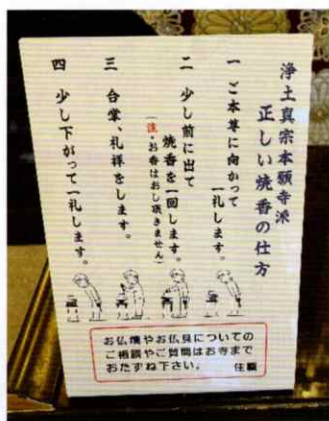 浄土真宗本願寺派
正しい焼香の仕方
一 ご本尊に向かって
一礼します。
二 少し前に出て
焼香を一回します。
(注・お香はおし頂きません)
三 合掌、礼拝をします。
四 少し下がって一礼します。
お仏壇やお仏具についての
ご相談やご質問はお寺まで
おたずね下さい。 住職